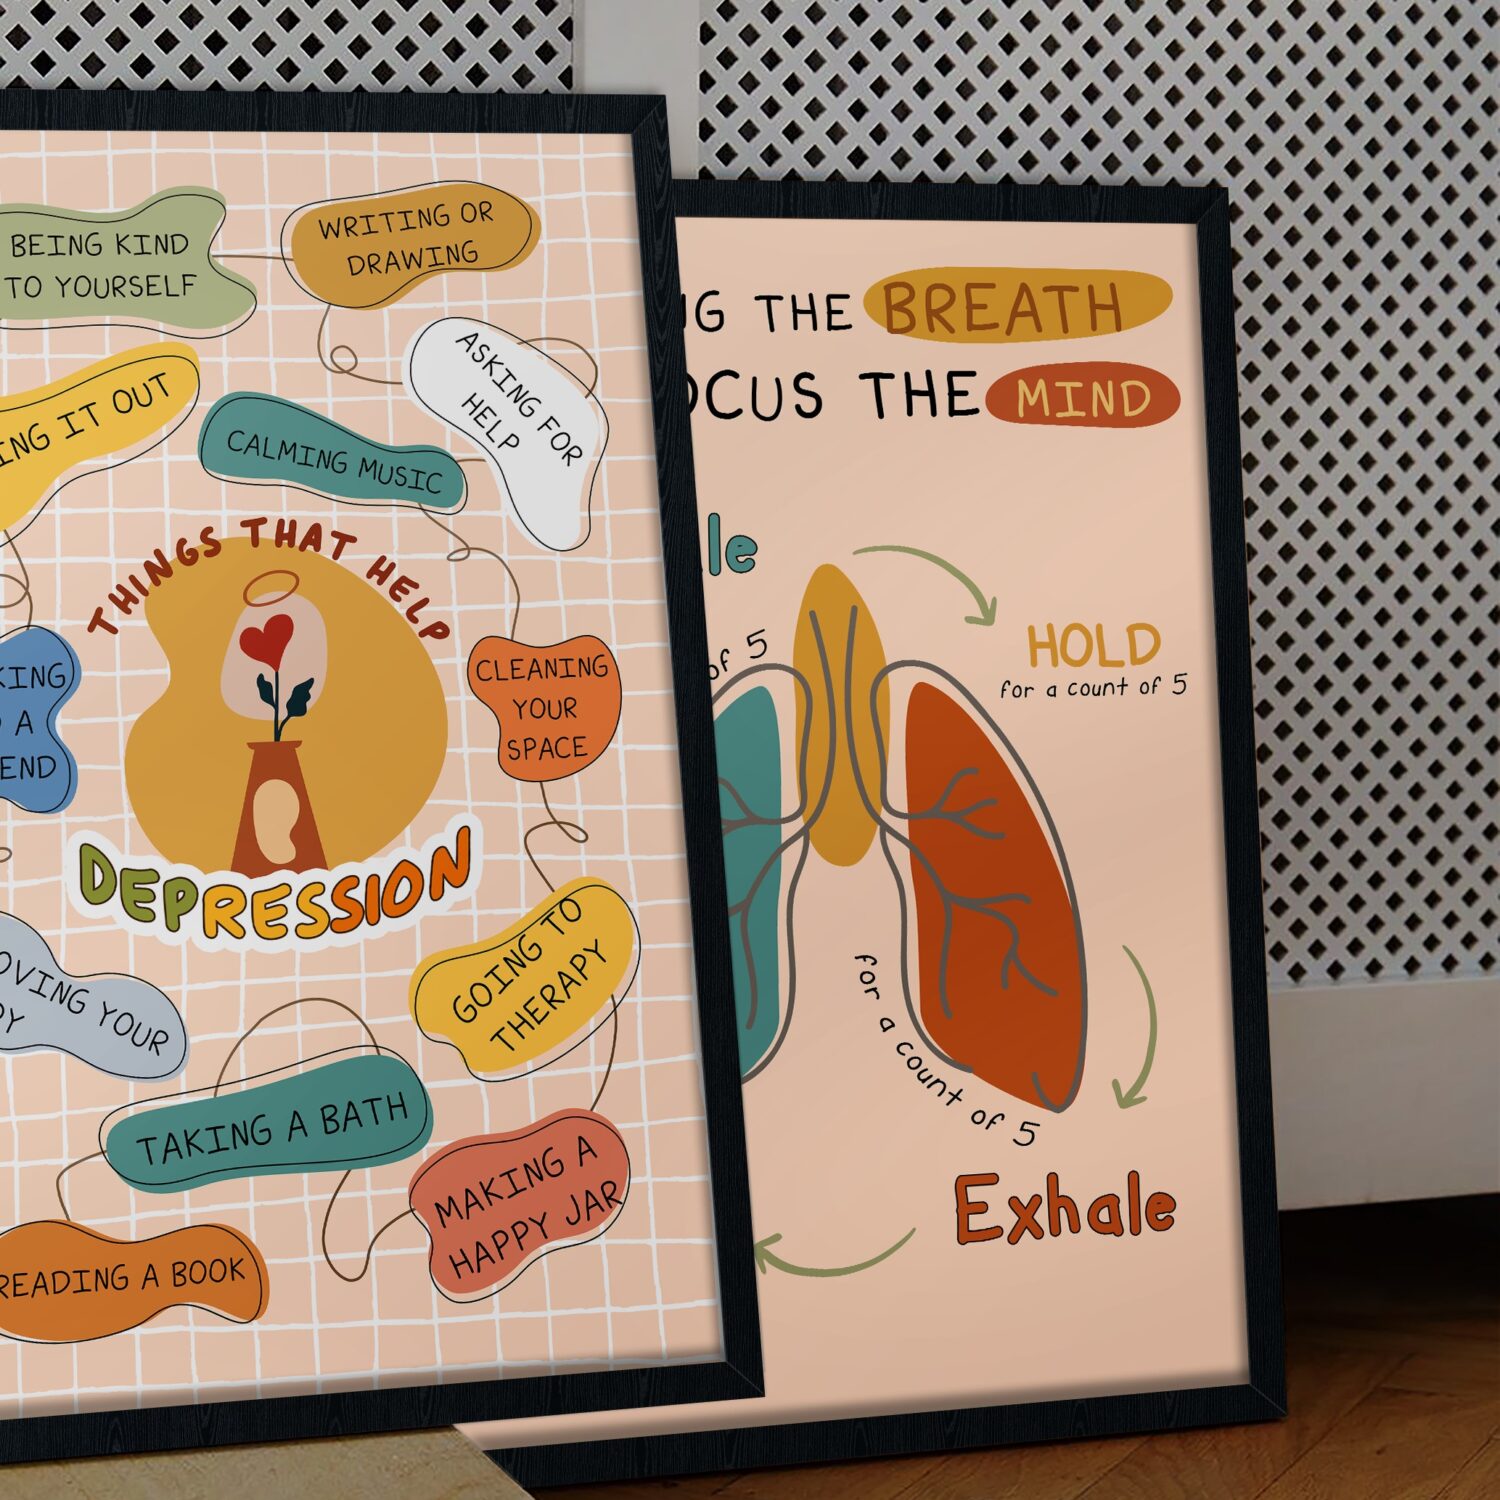 BEING KIND
TO YOURSELF
WRITING OR
DRAWING
ASKING FOR
HELP
IT OUT
CALMING MUSIC
THINGS THAT HELP
DEPRESSION
A
CLEANING
YOUR
SPACE
YOUR
GOING TO
THERAPY
TAKING A BATH
MAKING A
HAPPY JAR
READING A BOOK
THE BREATH
THE MIND
of 5
HOLD
for a count of 5
for a count of 5
Exhale